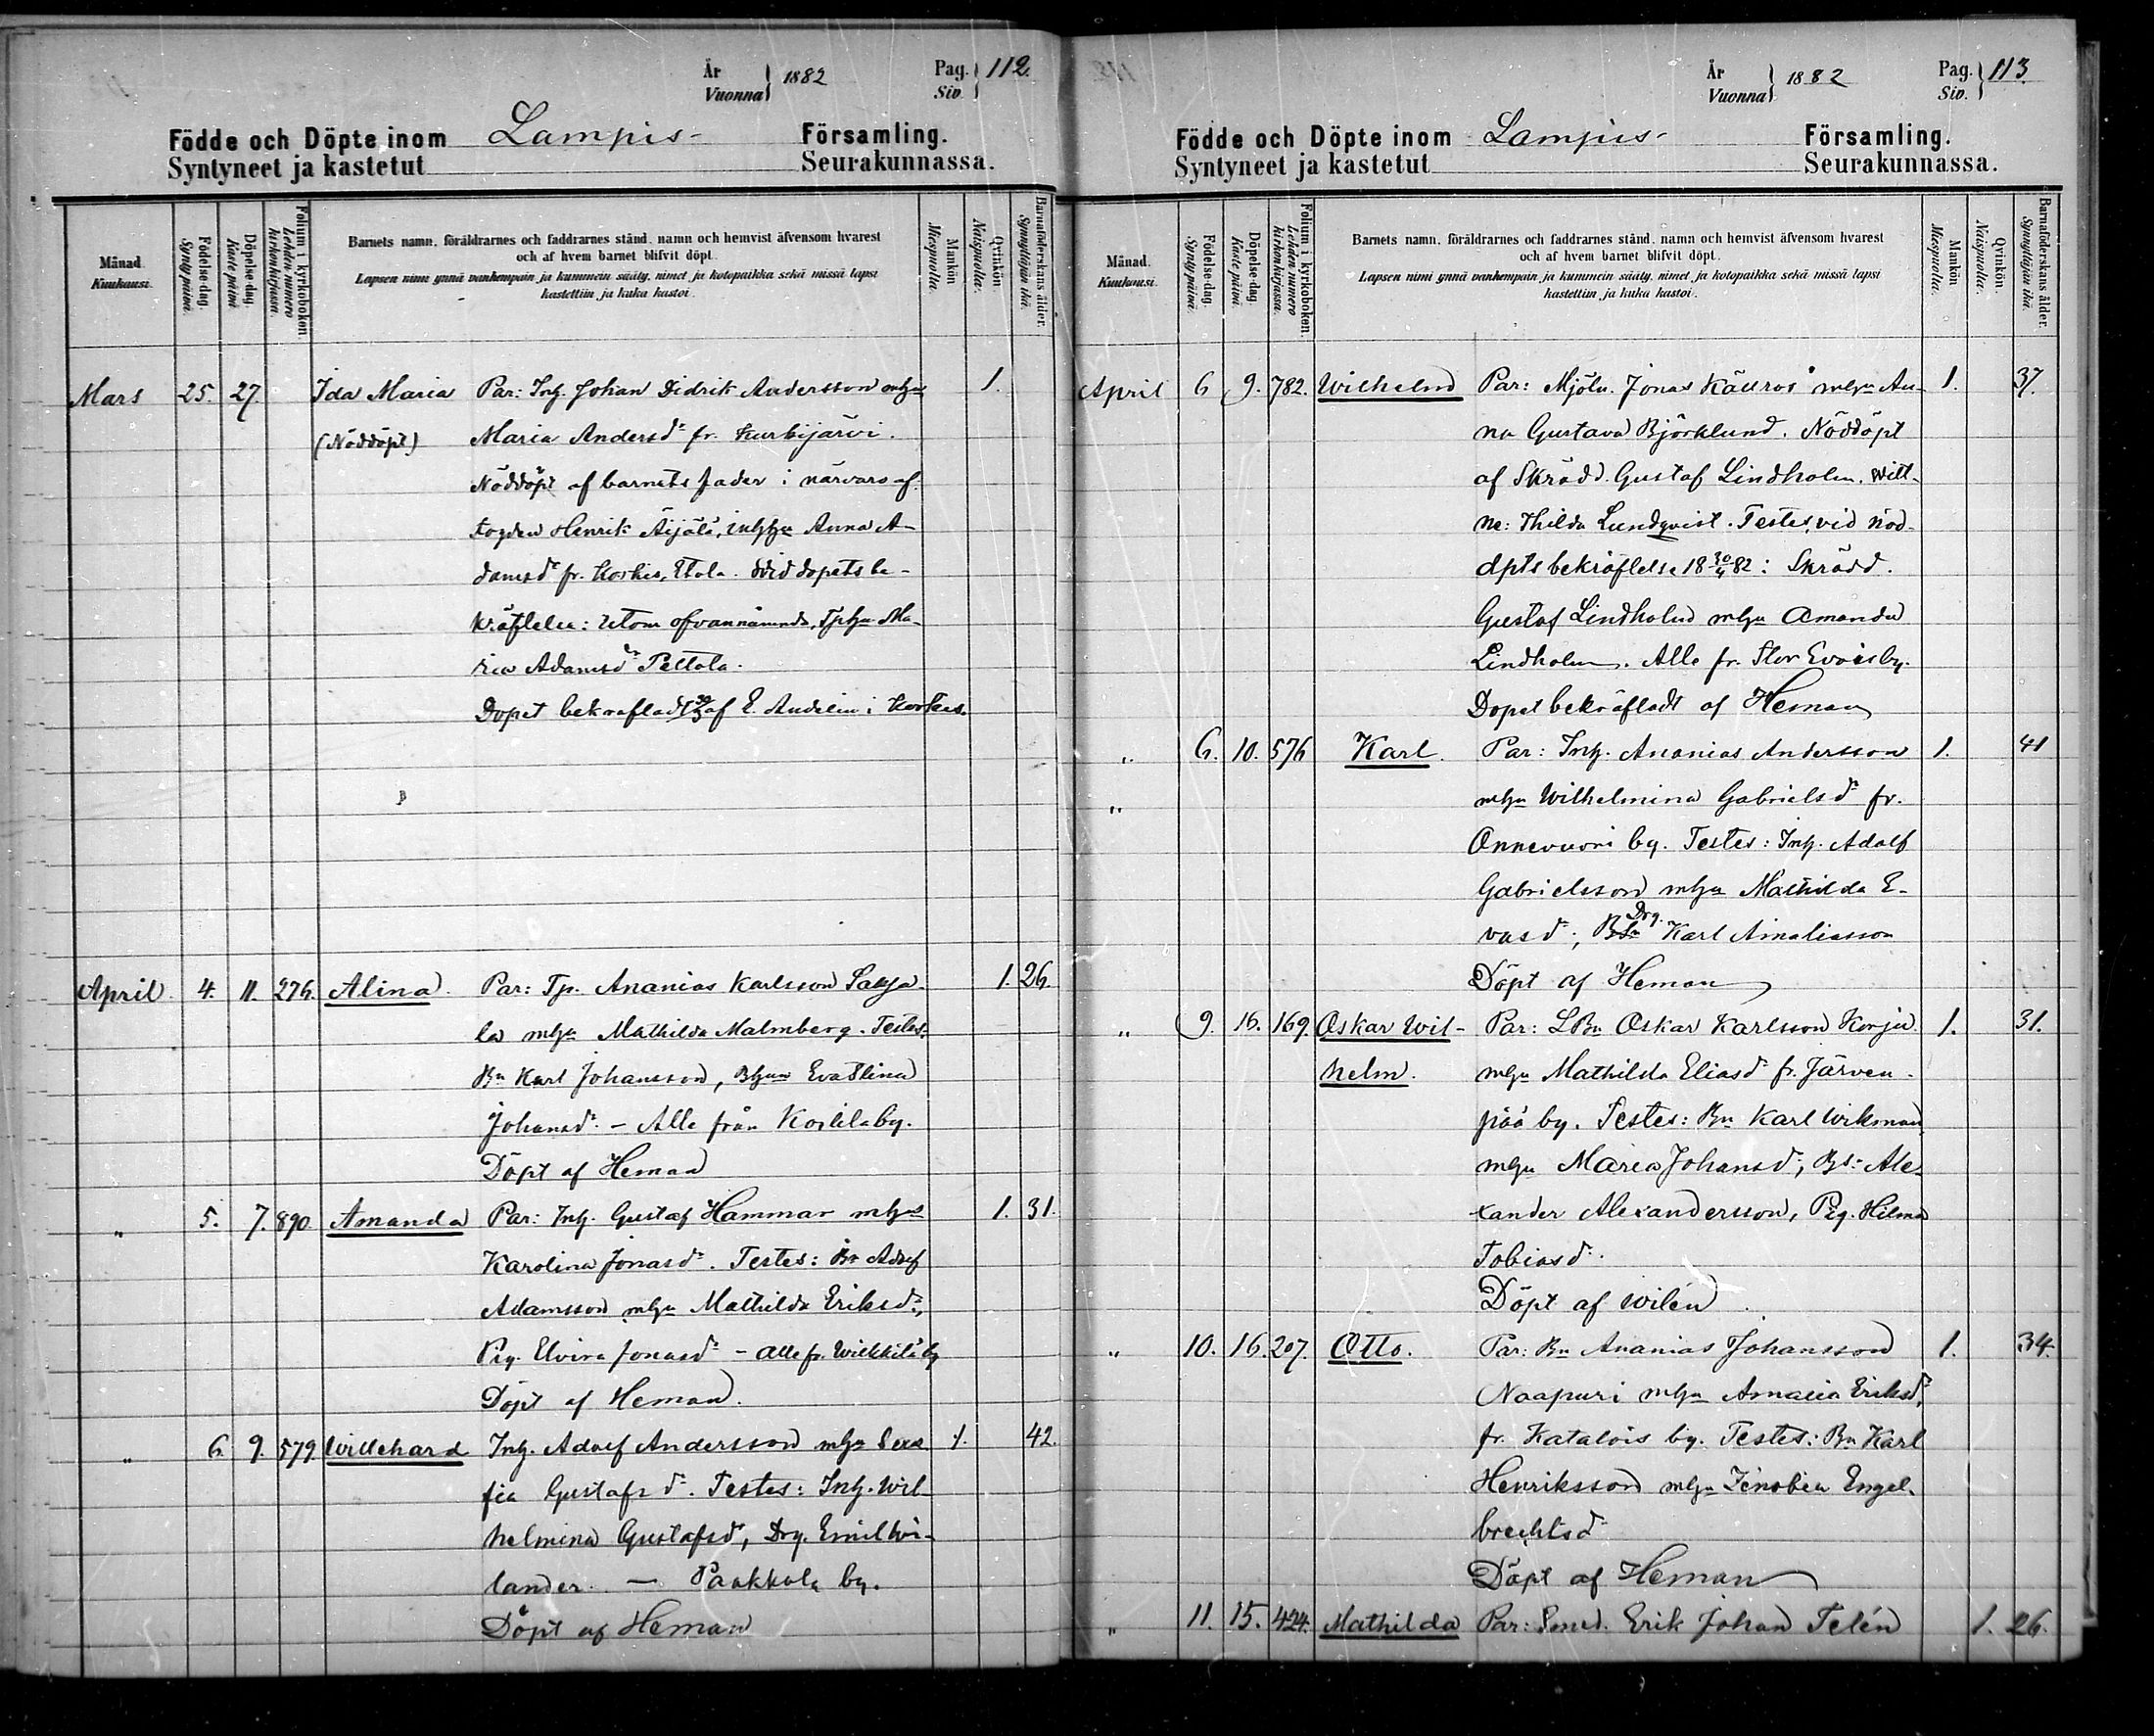 År
Vuonna } 1882
Pag.
Siv. } 112.
Födde och Döpte inom Lampis- Församling.
Syntyneet ja kastetut Seurakunnassa.
Månad. Kuukausi.
Födelse-dag. Synty päivä
Döpelse-dag. Kaste päivä
Folium i kyrkoboken. Lehden numero kirkonkirjassa.
Barnets namn, föräldrarnes och faddrarnes stånd, namn och hemvist äfvensom hvarest
och af hvem barnet blifvit döpt.
Lapsen nimi ynnä vanhempain ja kummein sääty, nimet ja kotopaikka sekä missä lapsi
kastettiin ja kuka kastoi.
Mankön Miespuolta.
Qvinkön. Naispuolta.
Barnaföderskans ålder. Synnyttäjän ikä
Mars 25. 27. Ida Maria Par: Inh. Johan Didrik Andersson mhu 1.
(Nöddöpt) Maria Andersd:r fr. Kurkijärvi.
Nöddöpt af barnets fader i närvaro af
Henrik Äijälä, Anna A-
damsd:r fr. Korkis, Etola. Vid dopets be-
kräftelse: Utom ofvannämnda, Ma-
ria Adamsd:r Peltola.
Dopet bekräftadt 30/3 af E. Andelin i Korkis.
April. 4. 11. 276. Alina. Par: Tp. Ananias Karlsson Saksa- 1. 26.
la mhu Mathilda Malmberg. Testes:
Bn Karl Johansson, Bhun Eva Stina
Johansd:r - Alla från Korkila by.
Döpt af Heman
" 5. 7. 890. Amanda Par: Inh. Gustaf Hammar mhu 1. 31.
Karolina Jonasd:r. Testes: Bn Adolf
Adamsson mhu Mathilda Eriksd:r,
Pig. Elvira Jonasd:r - Alla fr. Wilkkilä by
Döpt af Heman.
" 6. 9. 579. Willehard Inh. Adolf Andersson mhu Sera- 1. 42.
fia Gustafsd:r. Testes: Inh. Wil-
helmina Gustafsd:r, Drg. Emil Wi-
lander. — Paakkola by.
Döpt af Heman
År
Vuonna } 1882
Pag.
Siv. } 113.
Födde och Döpte inom Lampis- Församling.
Syntyneet ja kastetut Seurakunnassa.
Månad. Kuukausi.
Födelse-dag. Synty päivä
Döpelse-dag. Kaste päivä
Folium i kyrkoboken. Lehden numero kirkonkirjassa.
Barnets namn, föräldrarnes och faddrarnes stånd, namn och hemvist äfvensom hvarest
och af hvem barnet blifvit döpt.
Lapsen nimi ynnä vanhempain ja kummein sääty, nimet ja kotopaikka sekä missä lapsi
kastettiin ja kuka kastoi.
Mankön Miespuolta.
Qvinkön. Naispuolta.
Barnaföderskans ålder. Synnyttäjän ikä
April 6 9. 782. Wilhelm Par: Mjöln. Jonas Källros mhu An- 1. 37.
na Gustava Björklund. Nöddöpt
af Skrädd. Gustaf Lindholm. Witt-
ne: Thilda Lundqvist. Testes vid nöd-
dpts bekräftelse 18 30/4 82: Skrädd.
Gustaf Lindholm mhu Amanda
Lindholm. Alla fr. Stor Evois by.
Dopet bekräftadt af Heman
" 6. 10. 576 Karl. Par: Inh. Ananias Andersson 1. 41
" mhu Wilhelmina Gabrielsd:r fr.
Onnevuori by. Testes: Inh. Adolf
Gabrielsson mhu Mathilda E-
vasd:r; Drg. Karl Amaliasson
Döpt af Heman
" 9. 16. 169. Oskar Wil- Par: LBn Oskar Karlsson Korju 1. 31.
helm. mhu Mathilda Eliasd:r fr. Järven-
pää by. Testes: Bn Karl Wiksman
mhu Maria Johansd:r, Bs: Ale-
xander Alexandersson, Pig. Hilma
Tobiasd:r.
Döpt af Wilén
" 10. 16. 207. Otto. Par: Bn Ananias Johansson 1. 34.
Naapuri mhu Amalia Eriksd:r
fr. Katalois by. Testes: Bn Karl
Henriksson mhu Zenobia Engel-
brechtsd:r
Döpt af Heman
" 11. 15. 424. Mathilda Par: Smed. Erik Johan Telén 1. 26.